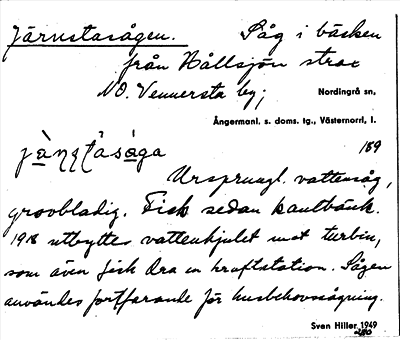 Järnstasågen. Såg i bäcken
från Hållsjön strax
NO. Vennersta by;
Nordingrå sn,
Ångermanl. s. doms. tg., Västernorrl. l.
189
Ursprungl. vattensåg,
grovbladig. Fick sedan kantbänk.
1918 utbyttes vattenhjulet mot turbin,
som även fick dra en kraftstation. Sågen
användes fortfarande för husbehovssågning.
Sven Hiller 1949